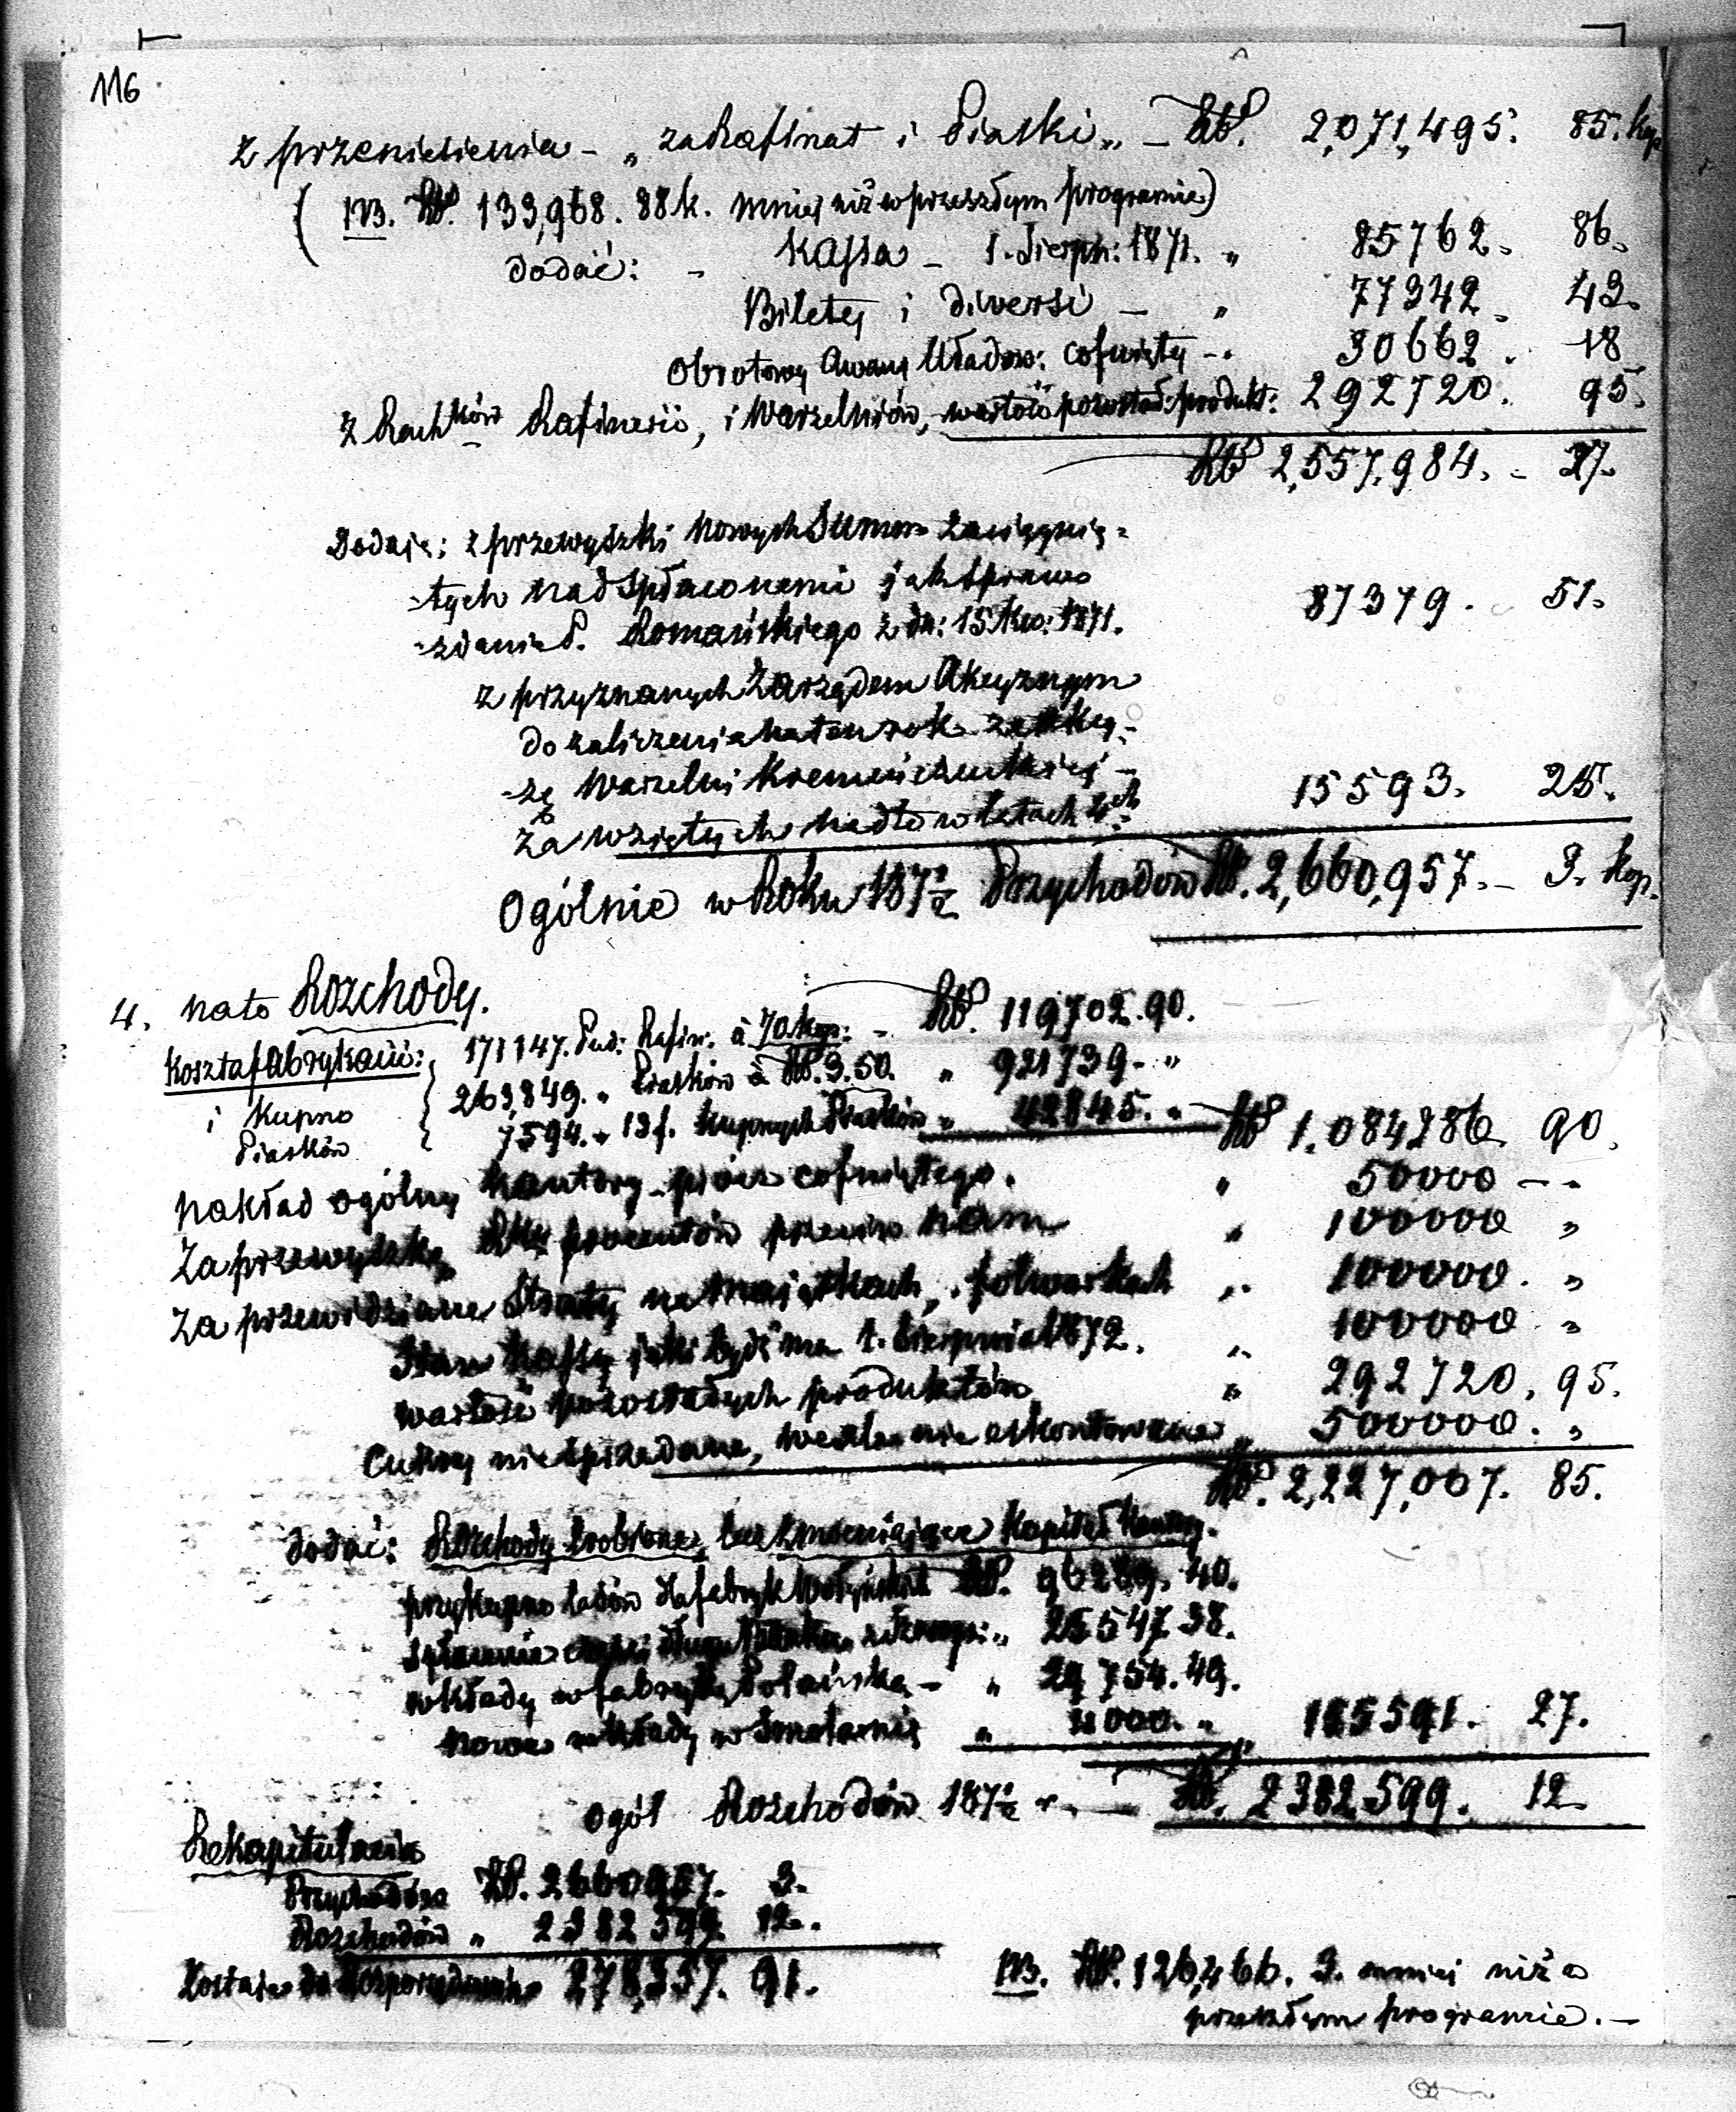 116
z przeniesienia - „ za Rafinat i Piaski „ - Rb. 2,071,495. 85. kop
( NB. Rb. 133,968. 88 k. mniej niż w przeszłym programie)
dodać: - Kassa - 1. Sierpn: 1871. „ 85762. 86.
Bilety i diversi - „ 77342. 43.
Obrotowy Awans Uładow: cofnięty - „ 30662. 18
z Rachków Rafinerii, i Warzelniów, wartość pozostał: produkt: 292720. 95.
Rb 2,557,984. - 27.
Dodaję: z przewyżki nowych Summ zaciągnię-
-tych nad spłaconemi jak sprawo
-zdanie P. Romańskiego z dn: 15 Kw: 1871. 87379. 51.
z przyznanych Zarządem Akcyznym
do zaliczenia na ten rok za akcy-
-zę Warzelni Kremeńczuckiej -
za wziętych nadto w latach 4ch 15593. 25.
Ogólnie w Roku 187½ Przychodów Rb. 2,660,957. - 3. kop.
4. na to Rozchody.
Koszta fabrykacii: 171147. Pud: Rafin: à 70 kop: - Rb. 119702.90.
i Kupno 263,849. „ Piasków à Rb. 3.50. „ 921739. „
Piasków 7594. „ 13 f. Kupnych Piasków „ 42845. „ Rb 1.084286. 90.
Nakład ogólny Kantory - prócz cofniętego. „ 50000 - -
Za przewyżkę Rky procentów przeciw nam „ 100000 „
Za przewidziane Straty na majątkach, folwarkach „ 100000. „
Stan Kassy jaki być ma 1. Sierpnia 1872. „ 100000. „
Wartość pozostałych produktów „ 292720. 95.
Cukry niesprzedane, wexle nie eskontowane „ 500000. „
Rb. 2,227,007. 85.
dodać: Rozchody zrobione, lecz zmieniające Kapitał Kantory.
przykupno ladów dla fabryk Wołyńskich Rb. 96289. 40.
spłacenie części długu 25547. 38.
wkłady w fabrykę Polańską - „ 29754. 49.
nowe wkłady w Smolarnię „ 4000. „ 155591. 27.
Ogół Rozchodów 187½ r. - Rb. 2382,599. 12
Rekapitulacia
Przychodów Rb. 2660957. 3.
Rozchodów „ 2382599. 12.
Zostaje do Rozporządzenia 278,357. 91.
NB. Rb. 126,466. 3. mniej niż w
przeszłym programie. -